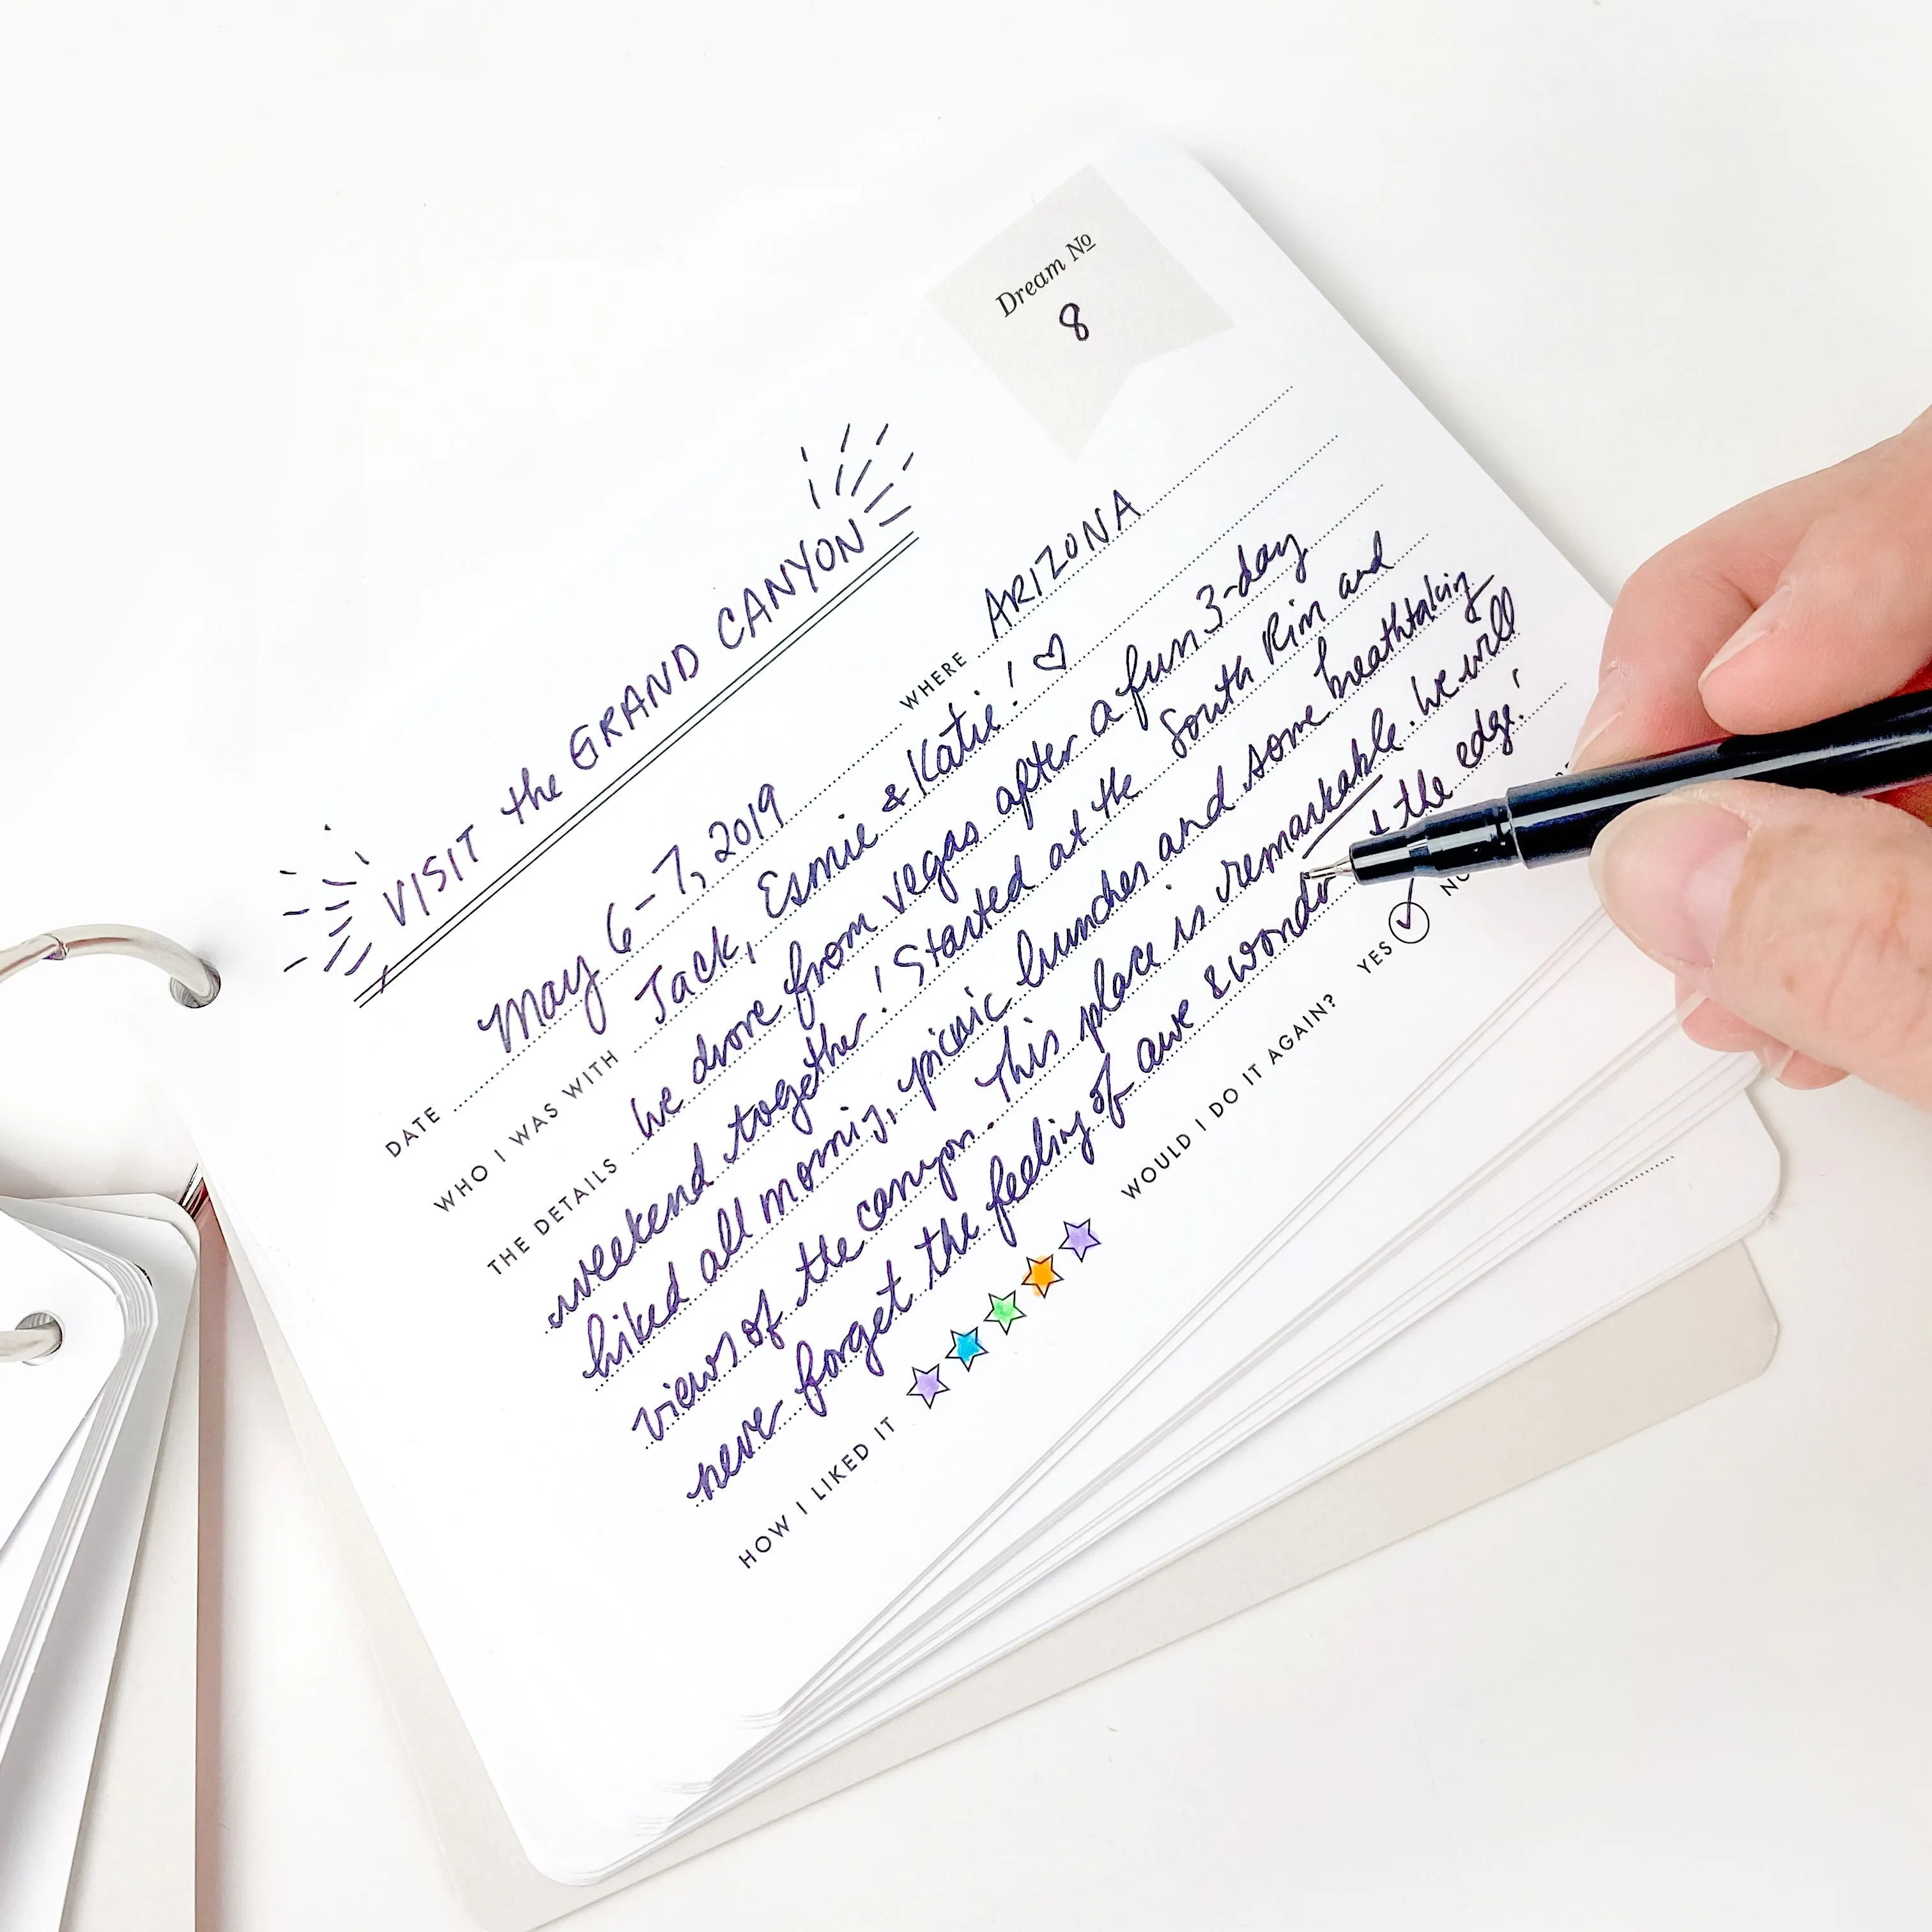 Dream No
8
VISIT the GRAND CANYON
DATE May 6-7, 2019 WHERE ARIZONA
WHO I WAS WITH Jack, Esmie & Katie! ♡
THE DETAILS We drove from Vegas after a fun 3-day
weekend together! Started at the South Rim and
hiked all morning, picnic lunches and some breathtaking
views of the canyon. This place is remarkable. We will
never forget the feeling of awe & the edge!
HOW I LIKED IT WOULD I DO IT AGAIN? YES ✓ NO